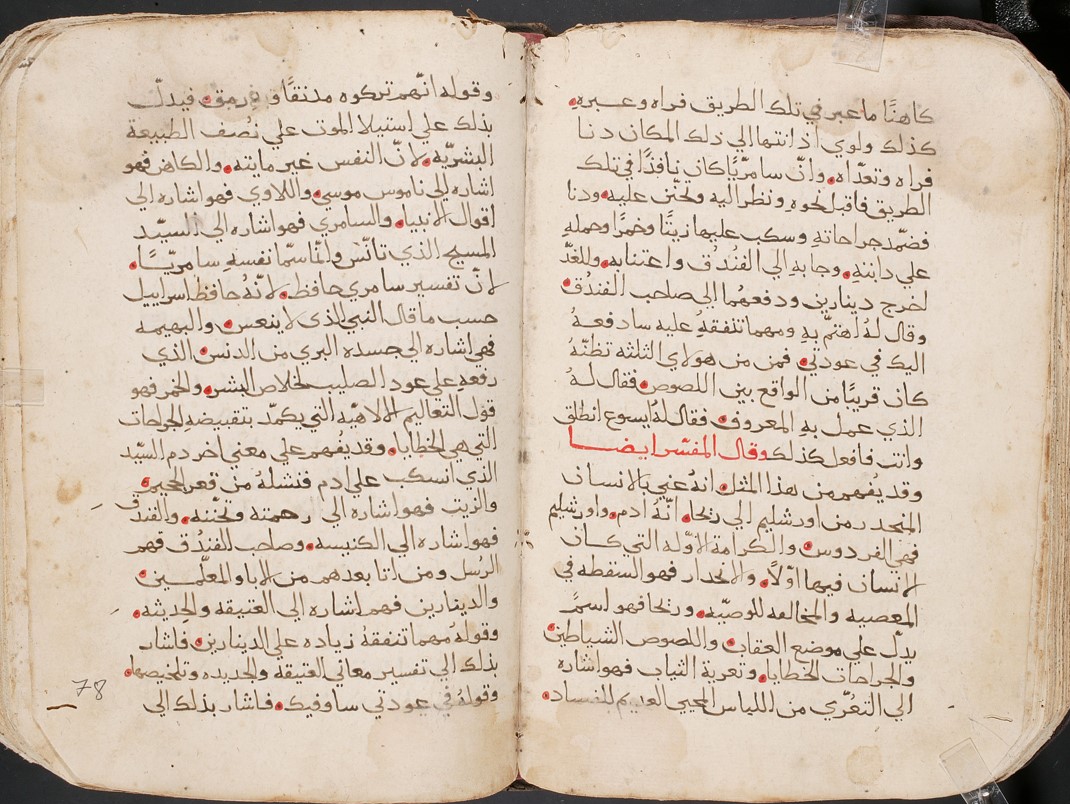 كاهنًا ما عبر في تلك الطريق فراه وعبره
كذلك ولوي اذ انتها الي ذلك المكان دنا
فراه وتعدّاه وانّ سامريًّا كان نافذًا في تلك
الطريق فاقبل نحوه ونظر اليه وتحنّن عليه ودنا
فضمّد جراحاته وسكب عليها زيتًا وخمرًا وحمله
علي دابته وجا به الي الفُندُق واعتنا به وللغدّ
اخرج دينارين ودفعهُما الي صاحب الفندُق
وقال لهُ اهتمّ به ومهما تنفقهُ عليه سادفعهُ
اليك في عودتي فمن من هولاي الثلثه تظنّهُ
كان قريبًا من الواقع بين اللصوص فقال لهُ
الذي عمل به المعروف فقال لهُ يسوع انطلق
وانت فافعل كذلك وقال المفسّر ايضا
وقد يُفهم من هذا المثل انهُ عني بالانسان
المنحدر من اورشليم الي ريحا انّهُ ادم واورشليم
فهي الفردوس والكرامة الاوّله التي كان
الانسان فيها اوّلاً والانحدار فهو السقطه في
المعصيه والمخالفه للوصيّه وريحا فهو اسمً
يدلّ علي موضع العقاب واللصوص الشياطين
والجراحات الخطايا وتعرية الثياب فهو اشاره
الي التعُرّي من اللباس المحيي العديم للفساد
وقوله انّهم تركوه مدنفًا وبه رمق فيدلّ
بذلك علي استيلا الموت علي نُصف الطبيعة
البشريّه لانّ النفس غير مايته والكاهن فهو
اشاره الي ناموس موسي واللاوي فهو اشاره الي
اقوال الانبيا والسامري فهو اشاره الي السيّد
المسيح الذي تانّس وانّما سمّا نفسهُ سامريًّا
لانّ تفسير سامري حافظ لانّهُ حافظ اسراييل
حسب ما قال النبي الذي لا ينعس والبهيمه
فهي اشاره الي جسده البري من الدنس الذي
رفعه علي عود الصليب لخلاص البشر والخمر فهو
قوّل التعاليم الالاهيّه التي يضمّد بتقبيضه الجراحات
التي هي الخطايا وقد يُفهم علي معني اخر دم السيّد
الذي انسكب علي ادم فنشلهُ من قعر الجحيم
والزيت فهو اشاره الي رحمته وتحنّنه والفندق
فهو اشاره الي الكنيسه وصاحب الفندُق فهم
الرُسل ومن اتا بعدهم من الابا والمعلّمين
والدينارين فهم اشاره الي العتيقه والحديثه
وقولهُ مهما تنفقهُ زياده علي الدينارين فاشار
بذلك الي تفسير معاني العتيقه والحديده وتلخيصها
وقولهُ في عودتي ساوفيك فاشار بذلك الي
78